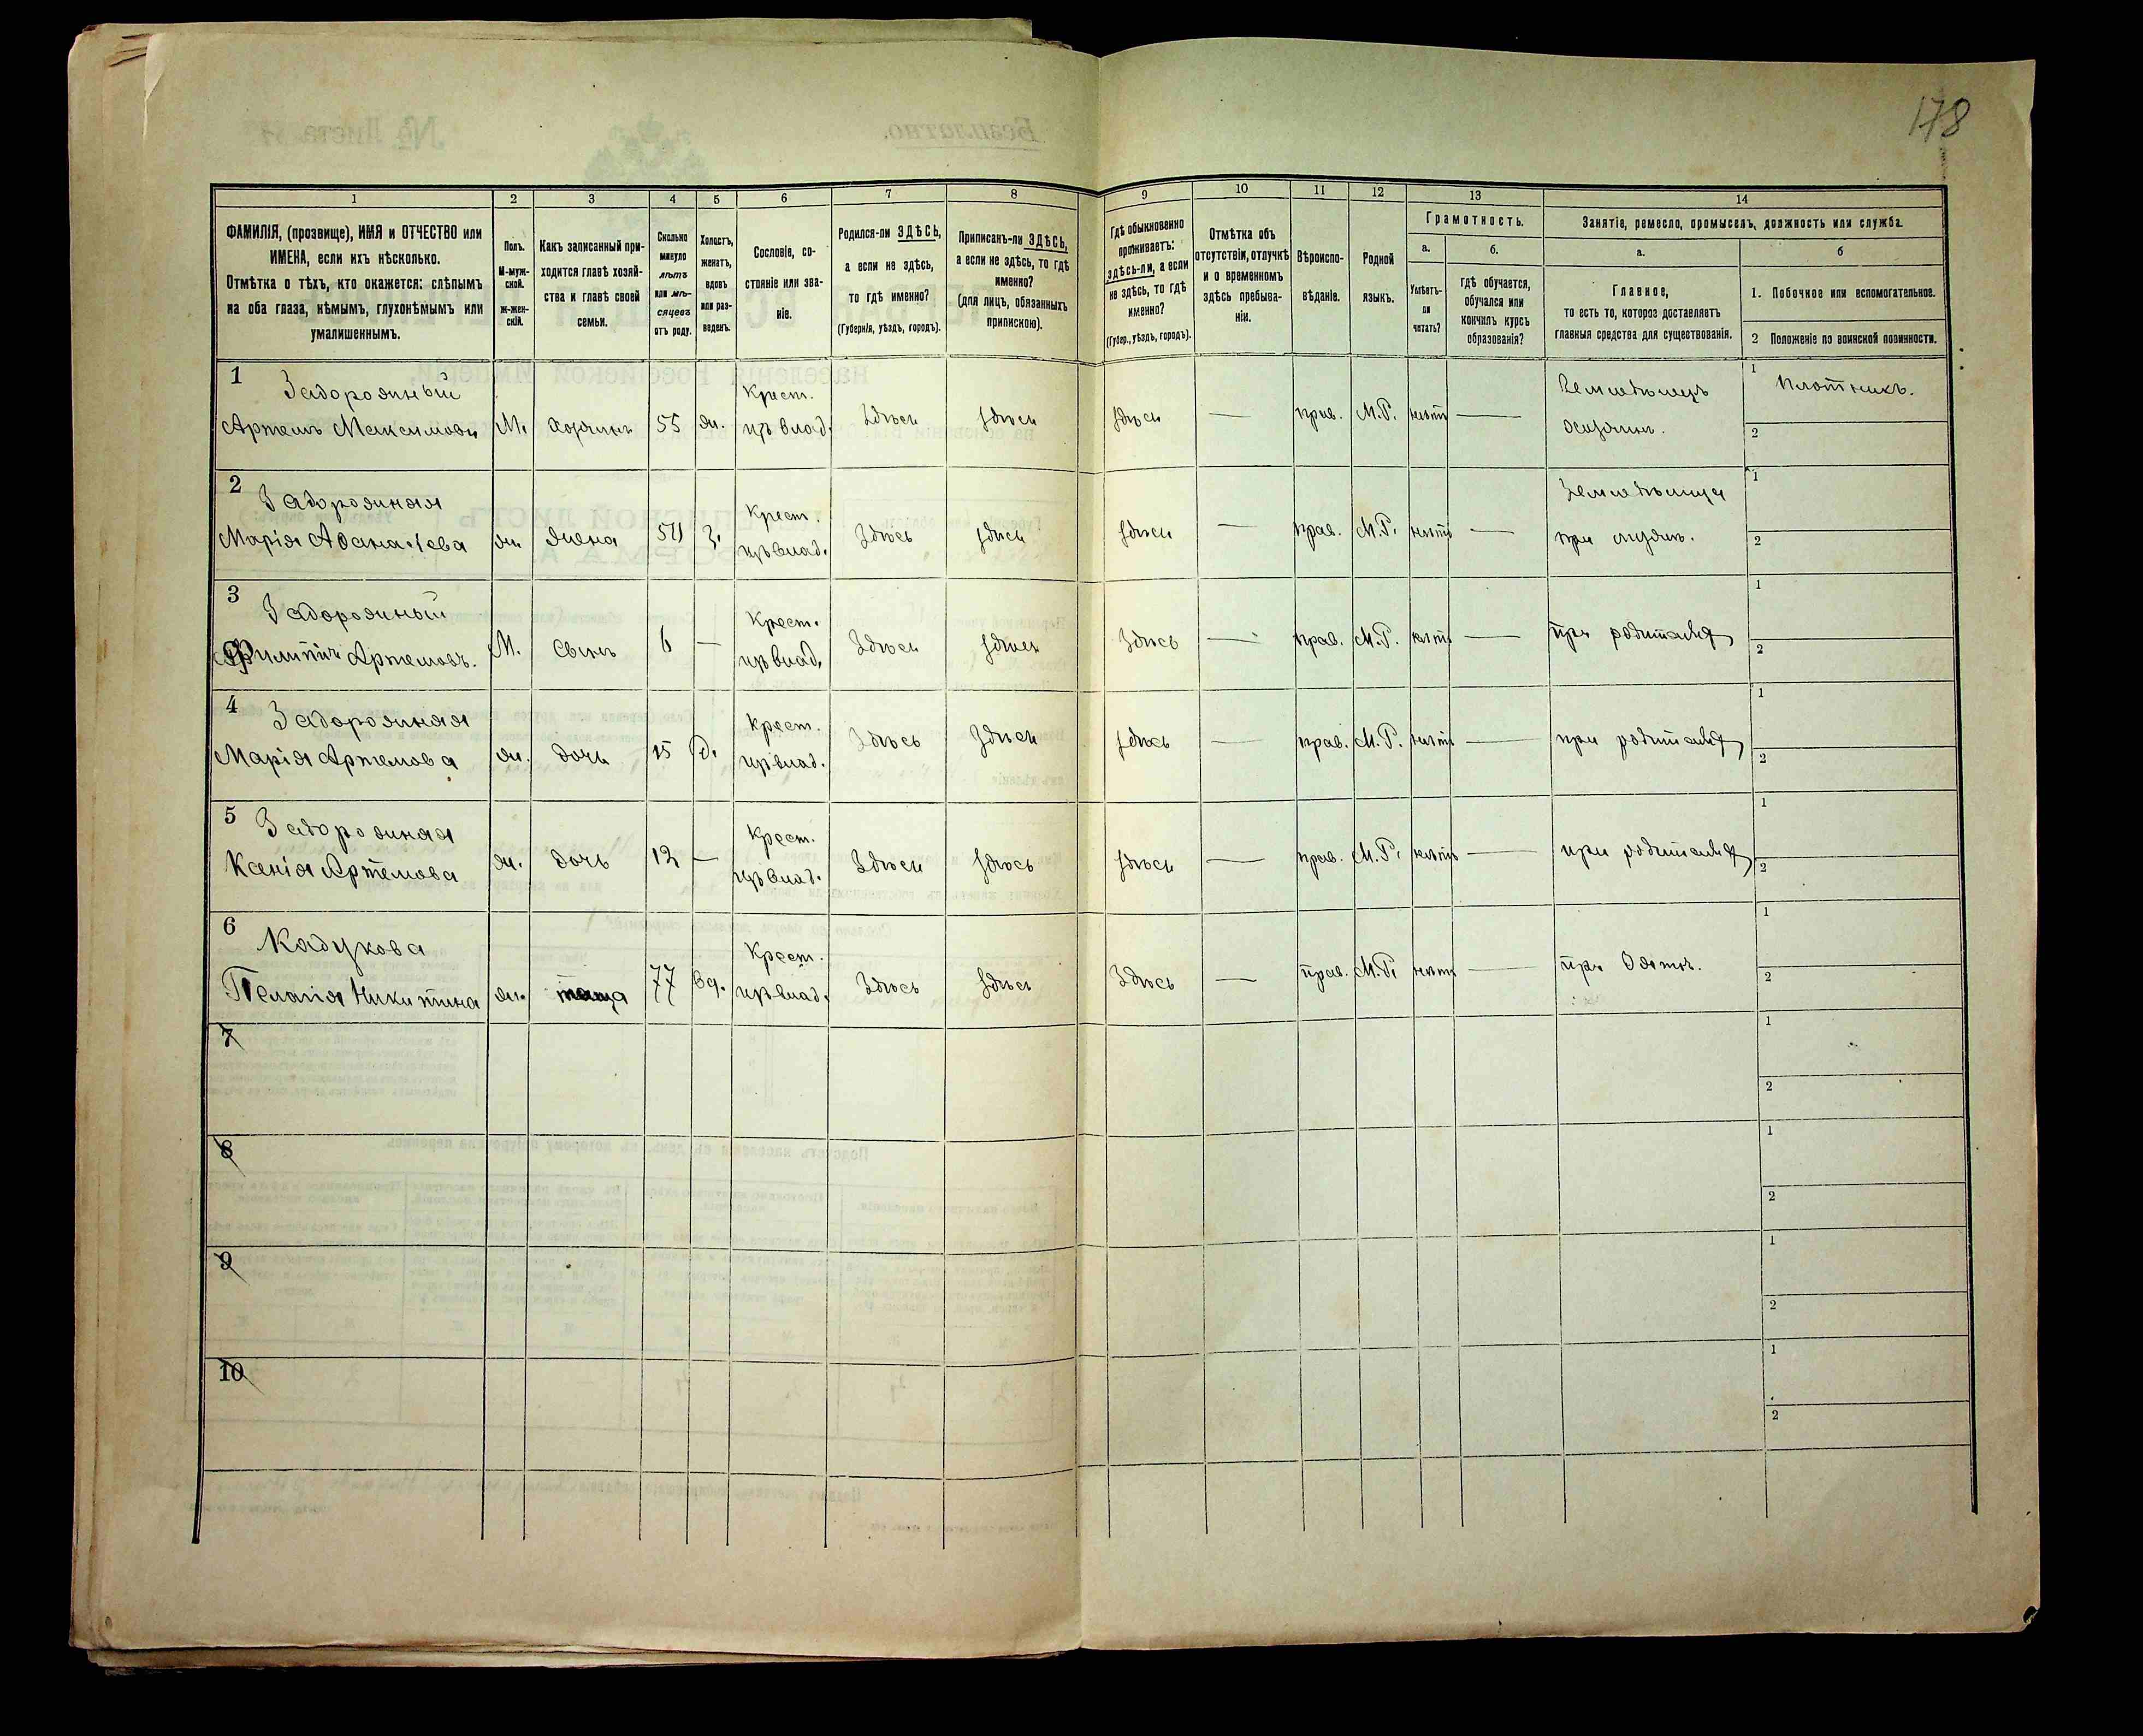 178
1 2 3 4 5 6 7 8 9 10 11 12 13 14
ФАМИЛІЯ, (прозвище), ИМЯ и ОТЧЕСТВО или
ИМЕНА, если ихъ нѣсколько.
Отмѣтка о тѣхъ, кто окажется: слѣпымъ
на оба глаза, нѣмымъ, глухонѣмымъ или
умалишеннымъ.
Полъ.
М-муж-
ской.
ж-жен-
скій.
Какъ записанный при-
ходится главѣ хозяй-
ства и главѣ своей
семьи.
Сколько
минуло
лѣтъ
или мѣ-
сяцевъ
отъ роду.
Холостъ,
женатъ,
вдовъ
или раз-
веденъ.
Сословіе, со-
стояніе или зва-
ніе.
Родился-ли ЗДѢСЬ,
а если не здѣсь,
то гдѣ именно?
(Губернія, уѣздъ, городъ).
Приписанъ-ли ЗДѢСЬ,
а если не здѣсь, то гдѣ
именно?
(для лицъ, обязанныхъ
припискою).
Гдѣ обыкновенно
проживаетъ:
здѣсь-ли, а если
не здѣсь, то гдѣ
именно?
(Губер., уѣздъ, городъ).
Отмѣтка объ
отсутствіи, отлучкѣ
и о временномъ
здѣсь пребыва-
ніи.
Вѣроиспо-
вѣданіе.
Родной
языкъ.
Грамотность.
а.
Умѣетъ-
ли
читать?
б.
Гдѣ обучается,
обучался или
кончилъ курсъ
образованія?
Занятіе, ремесло, промыселъ, должность или служба.
а.
Главное,
то есть то, которое доставляетъ
главныя средства для существованія.
б
1. Побочное или вспомогательное.
2 Положеніе по воинской повинности.
1 Задорожный Крест. Земледѣлецъ 1 Плотникъ.
Артемъ Максимовъ М. хозяинъ 55 ж. цр. влад. Здѣсь здѣсь здѣсь — прав. М.Р. нѣтъ — хозяинъ. 2
2 Задорожная Крест. Земледѣлица 1
Марія Афанасіева ж. жена 50 з. цр. влад. Здѣсь здѣсь здѣсь — прав. М.Р. нѣтъ — при мужѣ. 2
3 Задорожный Крест. 1
Филипъ Артемовъ. М. сынъ 6 — цр. влад. Здѣсь здѣсь Здѣсь — прав. М.Р. нѣтъ — при родителяхъ 2
4 Задорожная Крест. 1
Марія Артемова ж. дочь 15 д. цр. влад. Здѣсь Здѣсь здѣсь — прав. М.Р. нѣтъ — при родителяхъ 2
5 Задорожная Крест. 1
Ксенія Артемова ж. дочь 12 — цр. влад. Здѣсь здѣсь здѣсь — прав. М.Р. нѣтъ — при родителяхъ 2
6 Кадукова Крест. 1
Пелагія Никитина ж. теща 77 вд. цр. влад. Здѣсь здѣсь Здѣсь — прав. М.Р. нѣтъ — при зятѣ. 2
7 1
2
8 1
2
9 1
2
10 1
2